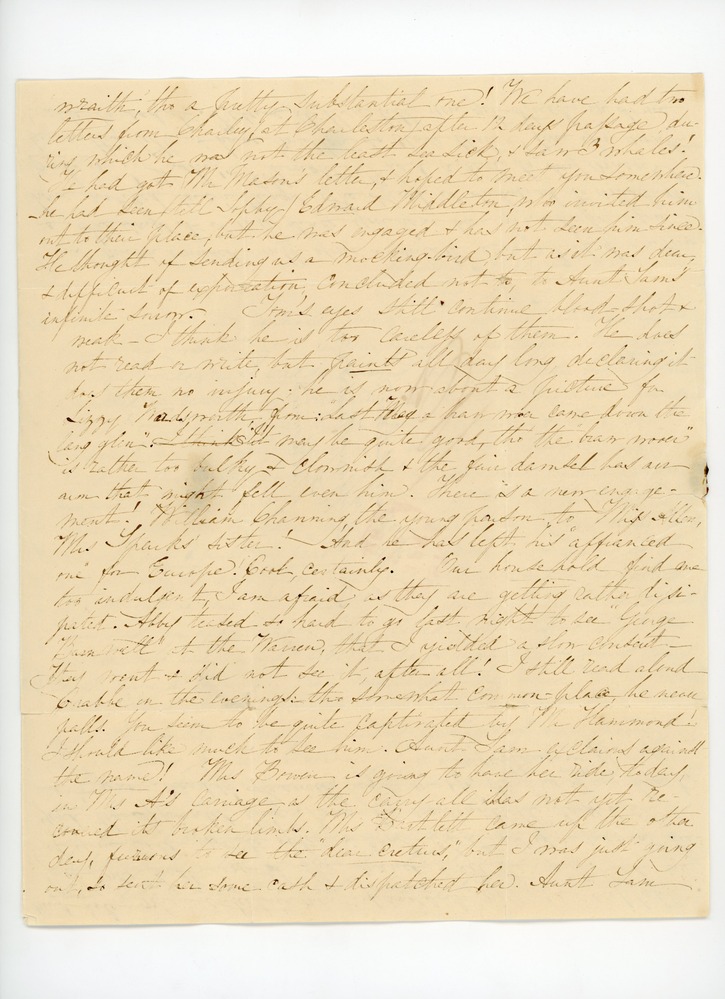 wraith, tho' a pretty substantial one! We have had two
letters from Charley, (at Charleston) after 12 days passage, du-
ring which he was not the least sea sick, & saw 3 whales!
He had got Mr Mason's letter, & hoped to meet you somewhere.
he had seen (tell Appy) Edward Middleton, who invited him
out to their place, but he was engaged & has not seen him since.
He thought of sending us a mocking-bird but as it was dear,
& difficult of exportation, concluded not to, to Aunt Sam's
infinite sorrow. Tom's eyes still continue blood-shot &
weak - I think he is too careless of them. He does
not read or write, but paints all day long declaring it
does them no injury. he is now about a picture for
Lizzy Wadsworth, from "Last May a braw wooer came down the
lang glen". I think it may be quite good, tho' the "braw wooer"
is rather too bulky & clownish & the fair damsel has an
arm that might fell even him. There is a new engage-
ment! William Channing, the young parson, to Miss Allen,
Mrs Sparks' sister! And he has left his "affianced
one" for Europe! Cool, certainly. Our household find me
too indulgent, I am afraid, as they are getting rather dissi-
pated. Abby teased so hard to go last night to see "George
Barnwell" at the Warren, that I yielded a slow consent -
They went & did not see it, after all! I still read aloud
Crabbe in the evenings. tho' somewhat common-place he never
palls. You seem to be quite captivated by Mr Hammond!
I should like much to see him. Aunt Sam exclaims against
the name! Mrs Bowen is going to have her ride, today,
in Mrs A's carriage, as the carry all has not yet re-
covered its broken limbs. Mrs Bartlett came up the other
day, furious to see the "dear creturs", but I was just going
out, so sent her some cash & dispatched her. Aunt Sam